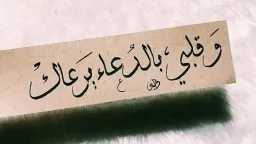 وَقلبي، بالدُعاءِ يَرعاكْ